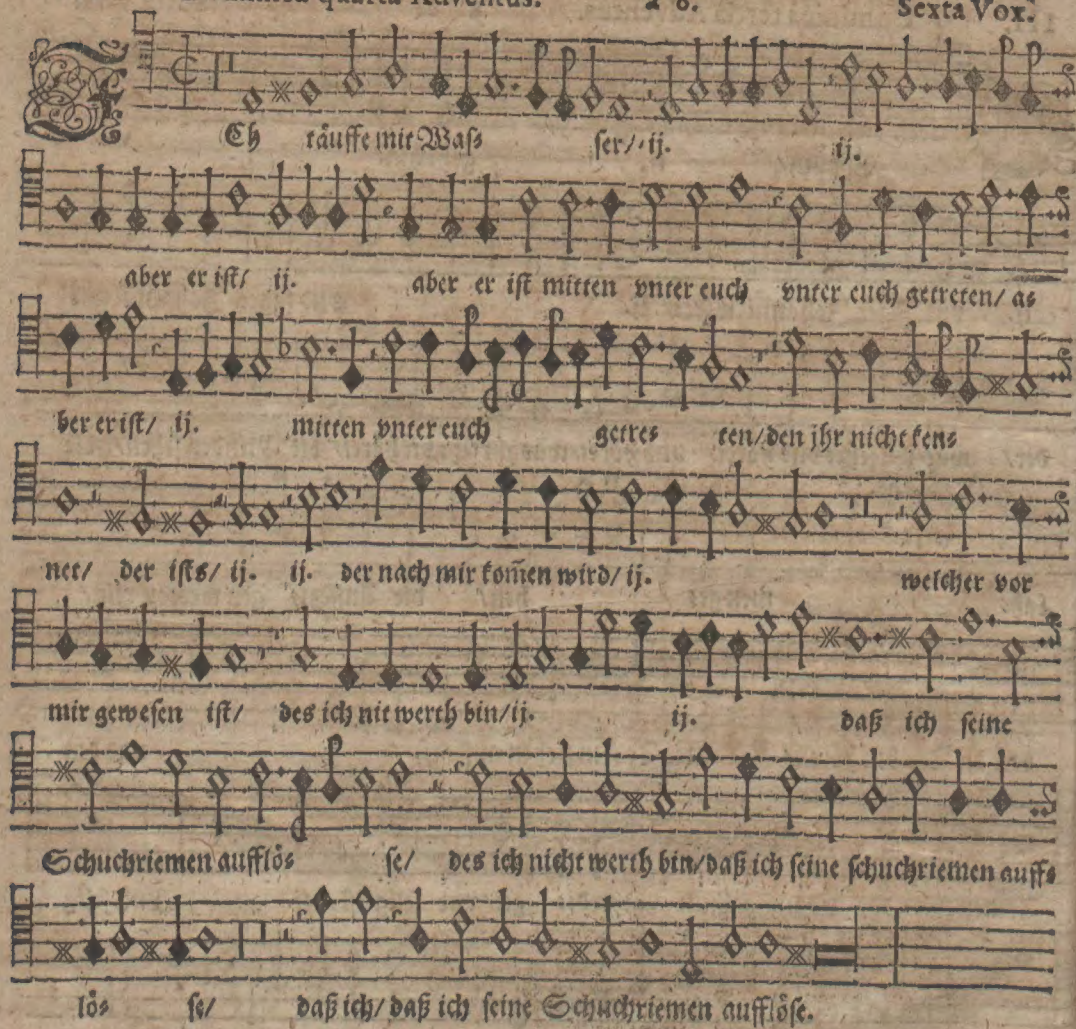 quarta Adventus. Sexta Vox.
Ch täuffe mit Waſ⸗ ſer/ ij. ij.
aber er iſt/ ij. aber er iſt mitten vnter euch vnter euch getreten/ a⸗
ber er iſt/ ij. mitten vnter euch getre⸗ ten/ den jhr nicht ken⸗
net/ der iſts/ ij. ij. der nach mir kom̃en wird/ ij. welcher vor
mir geweſen iſt/ des ich nit werth bin/ ij. ij. daß ich ſeine
Schuchriemen aufflö⸗ ſe/ des ich nicht werth bin/ daß ich ſeine ſchuchriemen auff⸗
lö⸗ ſe/ daß ich/ daß ich ſeine Schuchriemen aufflöſe.